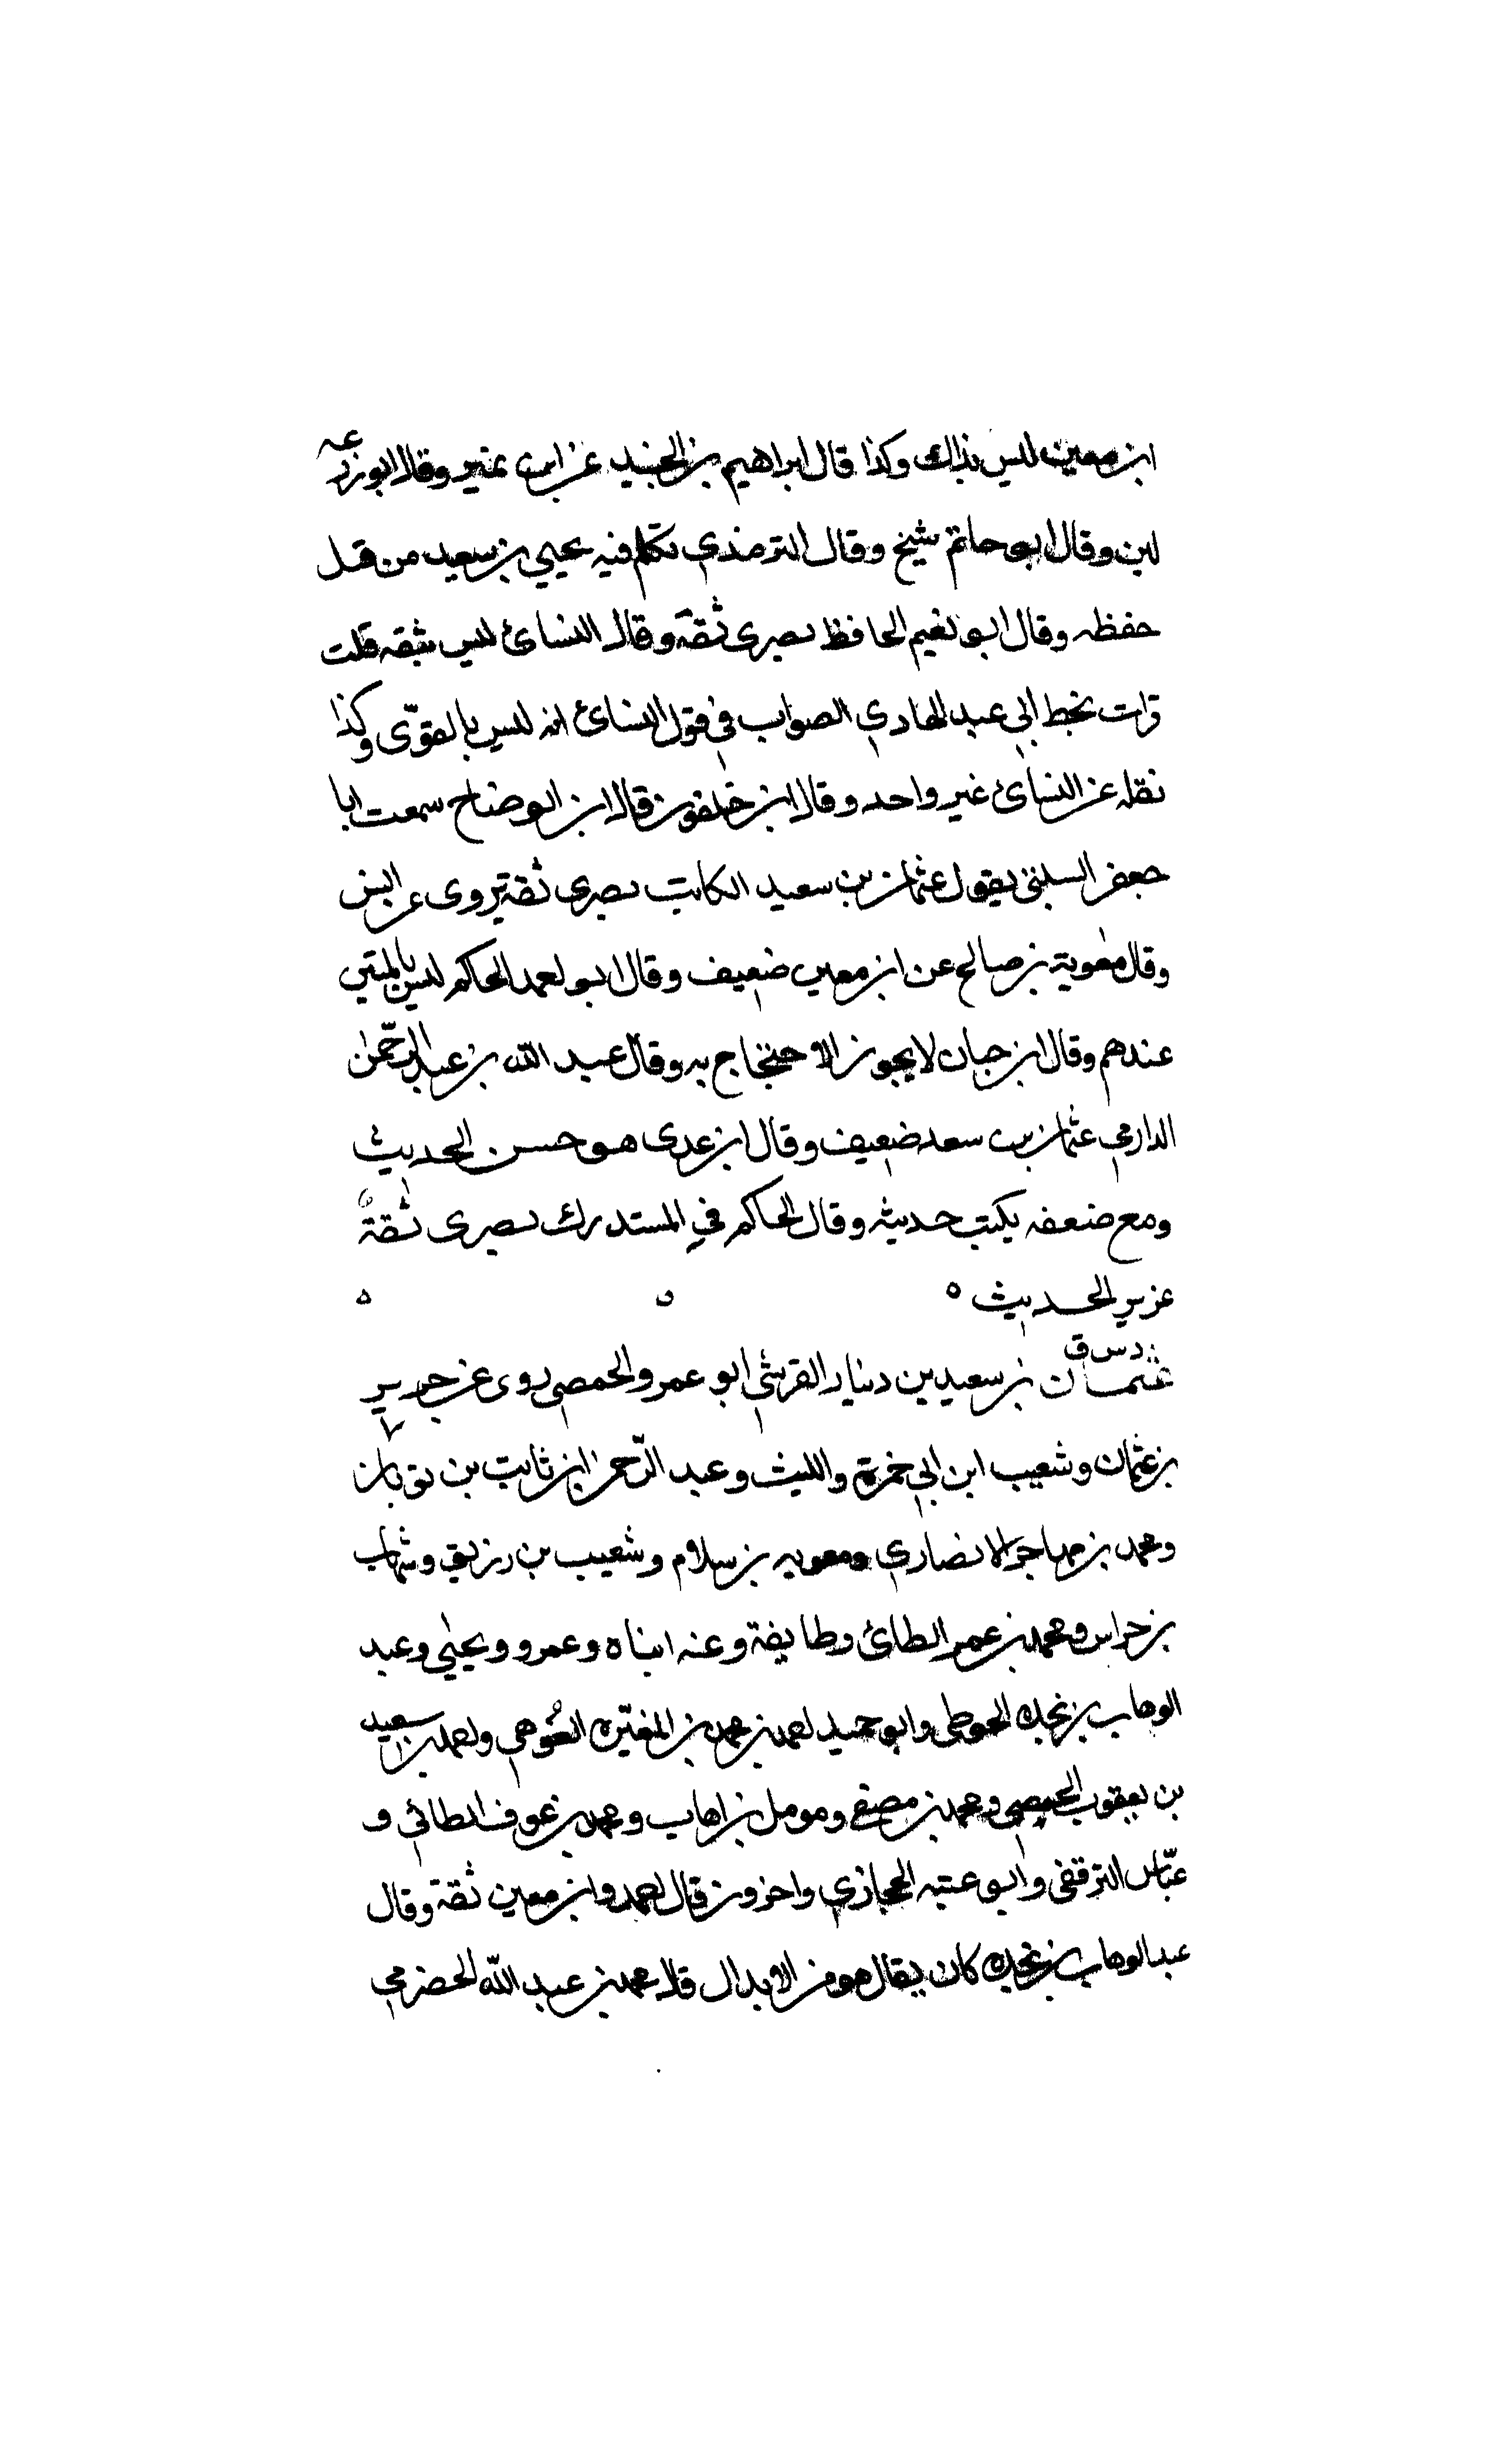 ابن معين ليس بذاك وكذا قال ابراهيم بن الجنيد عن ابن نمير وقال ابو زرعه
لين وقال ابو حاتم شيخ وقال الترمذي تكلم فيه يحيي بن سعيد من قبل
حفظه وقال ابو نعيم الحافظ بصرى ثقة وقال النسائ ليس بثقه قلت
قرات بخط ابي عبد الهادي الصواب في قول النسائ انه ليس بالقوّى وكذا
نقله عن النسائ غير واحد وقال ابن خلفون قال ابن الوضاح سمعت ابا
جعفر السبتى يقول عثمان بن سعيد الكاتب بصرى ثقة يروى عن انس
وقال معوية بن صالح عن ابن معين ضعيف وقال ابو احمد الحاكم ليس بالمتين
عندهم وقال ابن حبان لا يجوز الاحتجاج به وقال عبد الله بن عبد الرحمن
الدارمي عثمان بن سعد ضعيف وقال ابن عدى هو حسن الحديث
ومع ضعفه يكتب حديثه وقال الحاكم في المستدرك بصرى ثقة
عزيز الحديث ٥ ٥ ٥
د س ق
عثمان بن سعيد بن دينار القرشي ابو عمرو الحمصي روى عن حرير
بن عثمان وشعيب ابن ابي حمزة والليث وعبد الرّحمن ابن ثابت بن ثوبان
ومحمد بن مهاجر الانصاري ومعويه بن سلام وشعيب بن رزيق وشهاب
بن خراس ومحمد بن عمر الطائ وطايفة وعنه ابناه وعمرو ويحيٰي وعبد
الوهاب بن نجدة الحوطى وابو حميد احمد بن محمد بن المغيّره العُوهي واحمد بن سعيد
بن يعقوب الحمصي ومحمد بن مصفى ومومل بن اهاب ومحمد بن عوف الطائي و
عبّاس الترقفى وابو عتبه الحجازي واخرون قال احمد وابن معين ثقة وقال
عبد الوهاب بن نجدة كان يقال هو من الابدال قال محمد بن عبد الله الحضرمي